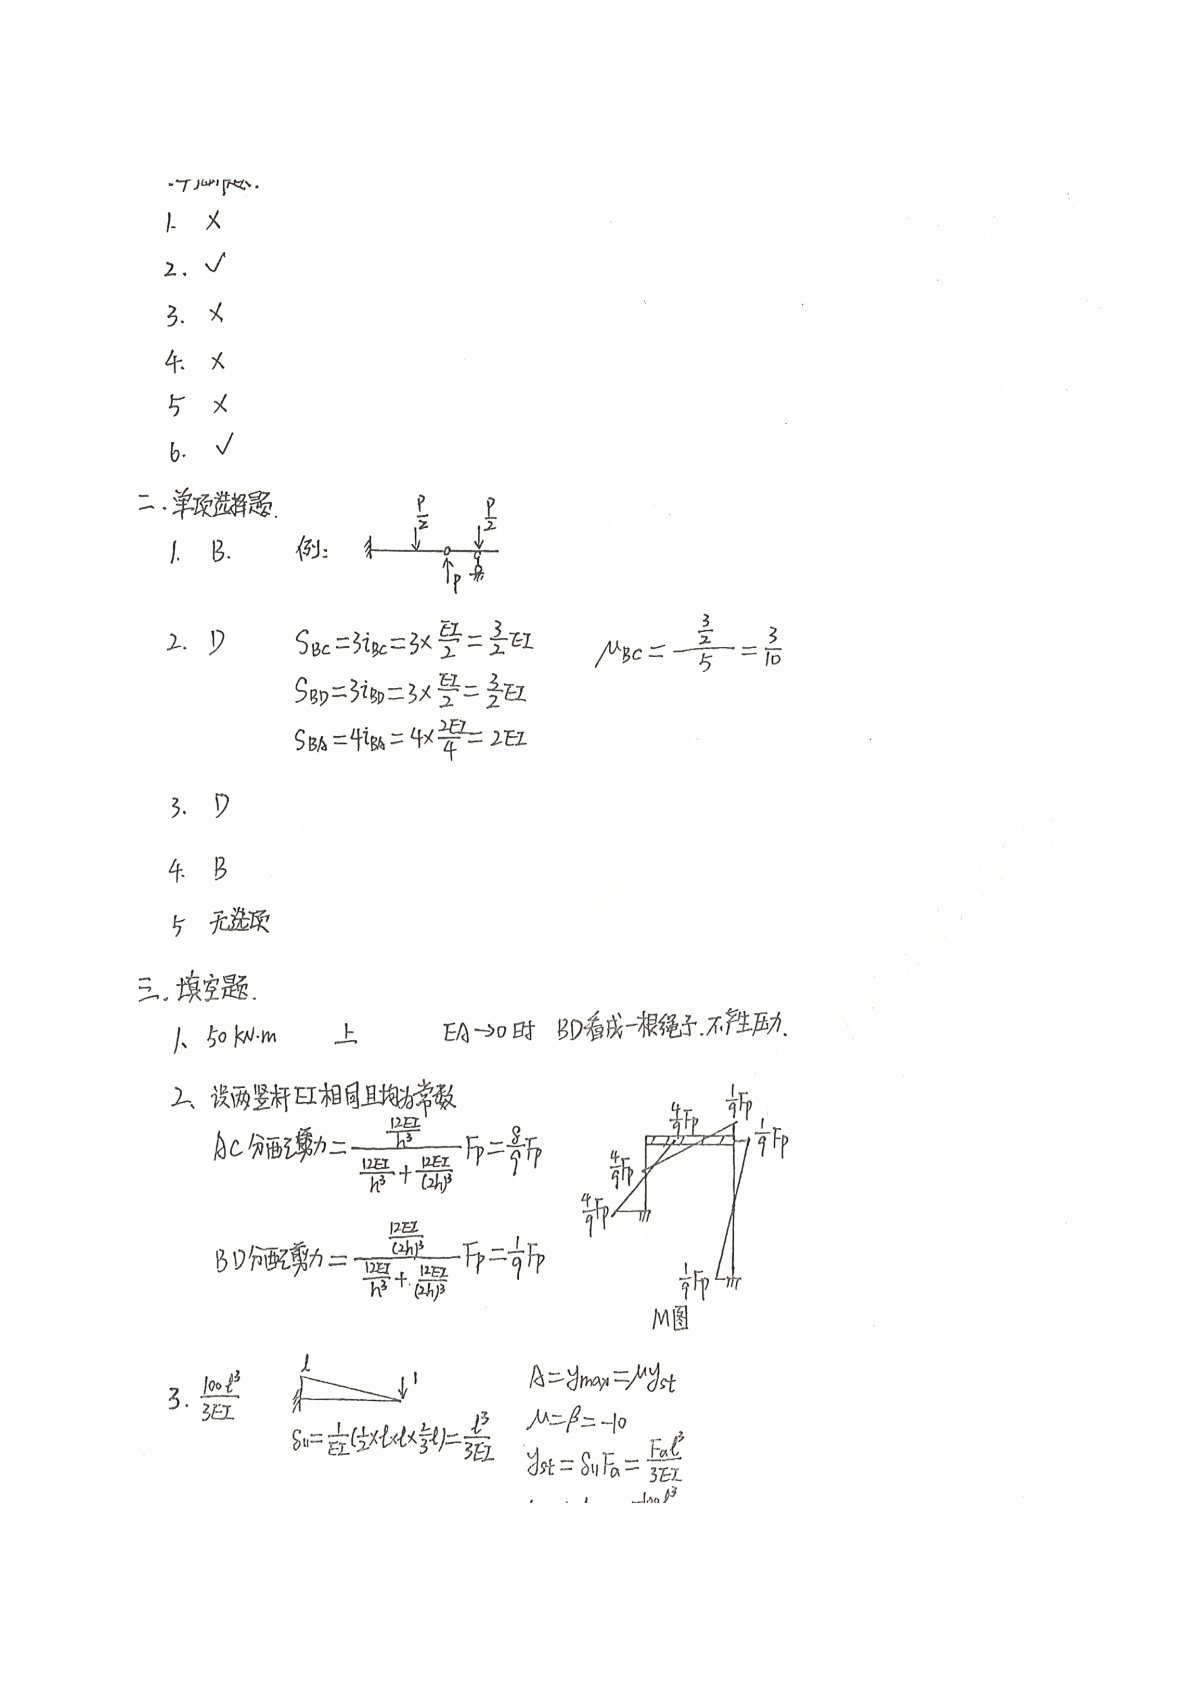 1. ×
2. ✓
3. ×
4. ×
5 ×
6. ✓
二.单项选择题.
1. B. 例: P/2 P/2 P
2. D S_BC=3i_BC=3×EI/2=3/2EI μ_BC=(3/2)/5=3/10
S_BD=3i_BD=3×EI/2=3/2EI
S_BA=4i_BA=4×2EI/4=2EI
3. D
4. B
5 无选项
三.填空题.
1、50kN·m 上 EA→0时 BD看成一根绳子.不产生压力.
2、设两竖杆EI相同且均为常数
AC分配剪力=(12EI/h³)/(12EI/h³+12EI/(2h)³)Fp=8/9Fp
BD分配剪力=(12EI/(2h)³)/(12EI/h³+12EI/(2h)³)Fp=1/9Fp
4/9Fp 1/9Fp
4/9Fp 1/9Fp
4/9Fp
1/9Fp
M图
3. 100l³/3EI l 1 A=y_max=μy_st
δ₁₁=1/EI(1/2×l×l×2/3l)=l³/3EI μ=β=-10
y_st=δ₁₁Fa=Fal³/3EI